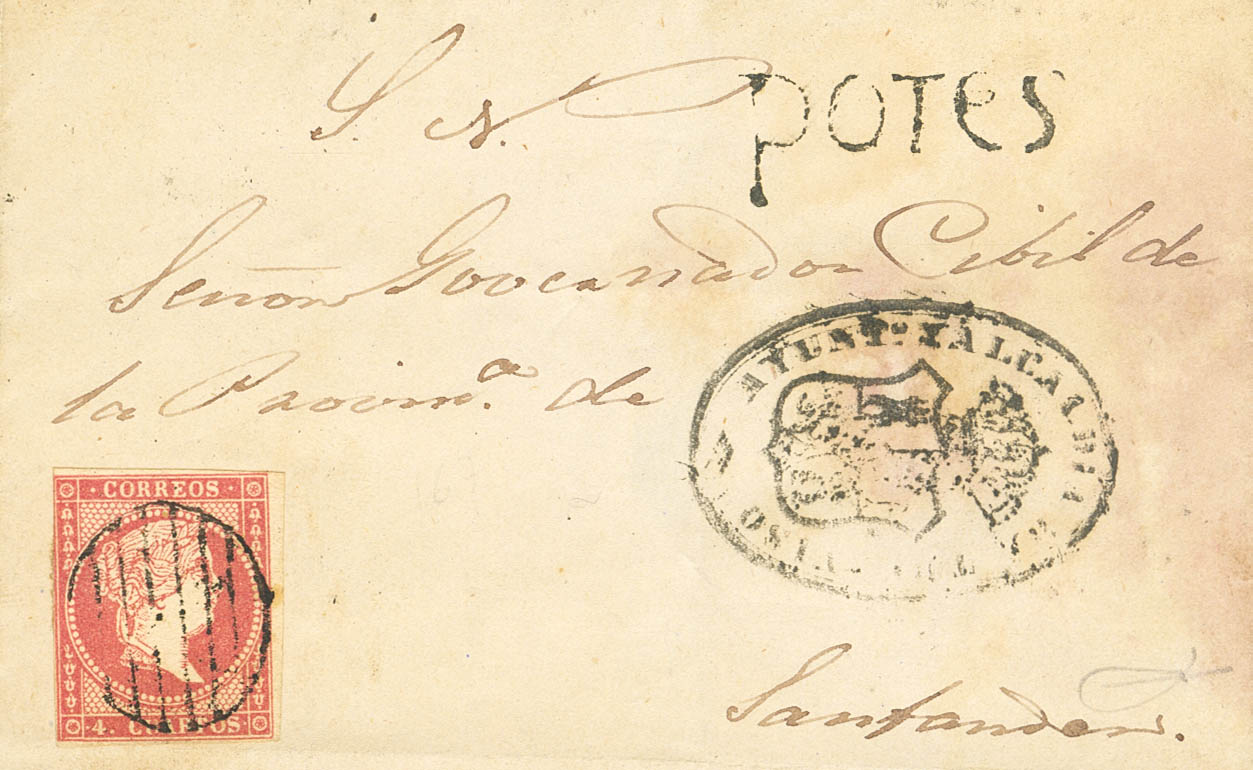 S. N.
POTES
Señor Governador Cibil de
la Provin.ª de
AYUNT.º Y ALCALDIA
CORREOS
4. CUARTOS
Santander.